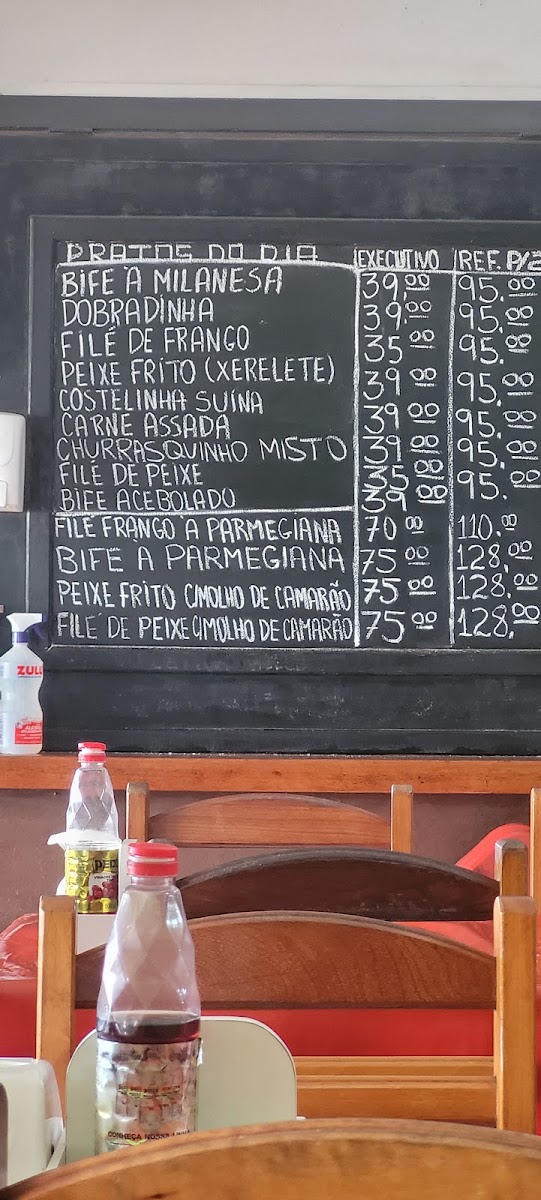 PRATOS DO DIA EXECUTIVO REF. P/2
BIFE À MILANESA 39,00 95,00
DOBRADINHA 39,00 95,00
FILÉ DE FRANGO 35,00 95,00
PEIXE FRITO (XERELETE) 39,00 95,00
COSTELINHA SUÍNA 39,00 95,00
CARNE ASSADA 39,00 95,00
CHURRASQUINHO MISTO
FILÉ DE PEIXE 35,00
BIFE ACEBOLADO 39,00
FILÉ FRANGO À PARMEGIANA 70,00 110,00
BIFE À PARMEGIANA 75,00 128,00
PEIXE FRITO C/MOLHO DE CAMARÃO 75,00 128,00
FILÉ DE PEIXE C/MOLHO DE CAMARÃO 75,00 128,00
ZULU
CONHEÇA NOSSA